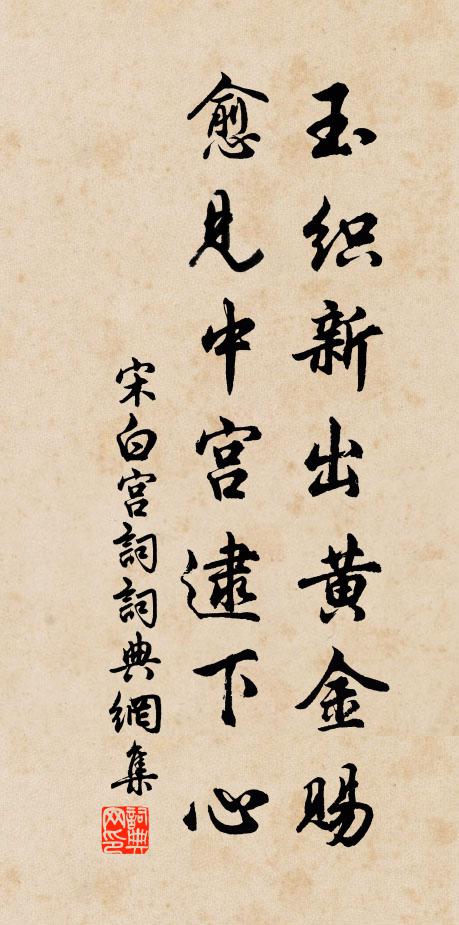 玉织新出黄金赐
愈见中宫逮下心
宋白宫詞詞典網集
詞典网印